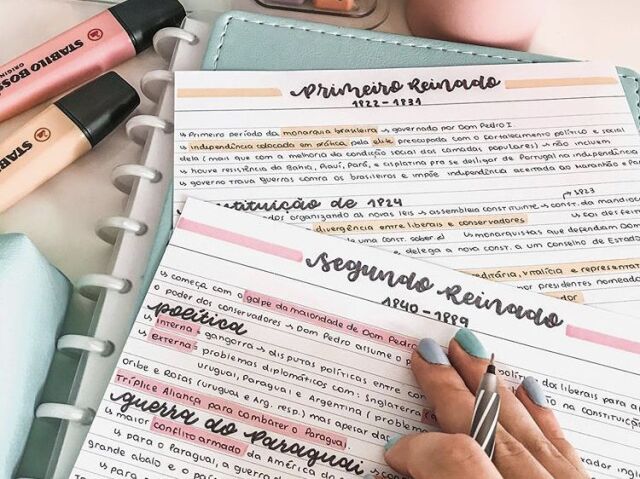 STABILO BOSS
ORIGINAL
STABILO
Primeiro Reinado
1822 - 1831
↳ Primeiro período da monarquia brasileira ↳ governado por Dom Pedro I
↳ independência colocada em prática pela elite preocupada com o fortalecimento político e social
dela (mais que com a melhoria da condição social das camadas populares) ↳ não incluem
↳ houve resistência da Bahia, Piauí, Pará, e Cisplatina pra se desligar de Portugal na independência
↳ governo trava guerras contra os brasileiros e impõe independência aceitada ao Maranhão e
de 1824
↳ 1823
organizando as novas leis → assembleia constituinte ↳ const. da mandioc
divergência entre liberais e conservadores
uma const.
↳ monarquistas que defendiam Dom
e delega a nova const. a um Conselho de Estad
vitalícia e represent
por presidentes nomead
Segundo Reinado
1840 - 1889
↳ começa com o golpe da maioridade de Dom Pedro
o poder dos conservadores ↳ Dom Pedro assume o
política
↳ interna - gangorra → disputas políticas entre
↳ externa - problemas diplomáticos com: Inglaterra
Uruguai, Paraguai e Argentina (problema
Oribe e Rosas (Uruguai e Arg. resp.) mas apesar das
Tríplice Aliança para combater o Paraguai
políticos dos liberais para a
na constituição
guerra do Paraguai
↳ maior conflito armado da América do
↳ para o Paraguai, a guerra
grande abalo e o país
↳ para